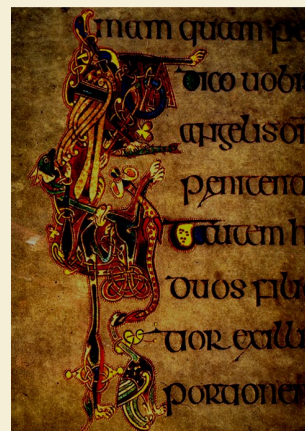 mam quam pe
dico uobi
angelis di
penitenti
autem h
duos filii
tior ex illi
portione